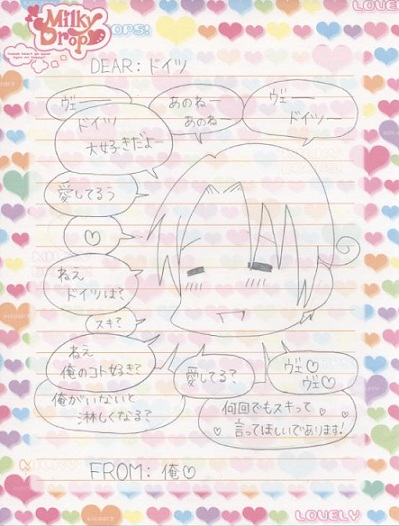 Milky Drop
OPS!
LOVELY
DEAR: ドイツ
ヴェー
あのねー
あのねー
ヴェー
ドイツー
ドイツ
大好きだよー
愛してるぅ
♡
ねえ
ドイツは?
スキ?
ねえ
俺のコト好き?
俺がいないと
淋しくなる?
愛してる?
ヴェ♡
ヴェ♡
何回でもスキって
言ってほしいであります!
FROM: 俺♡
LOVELY